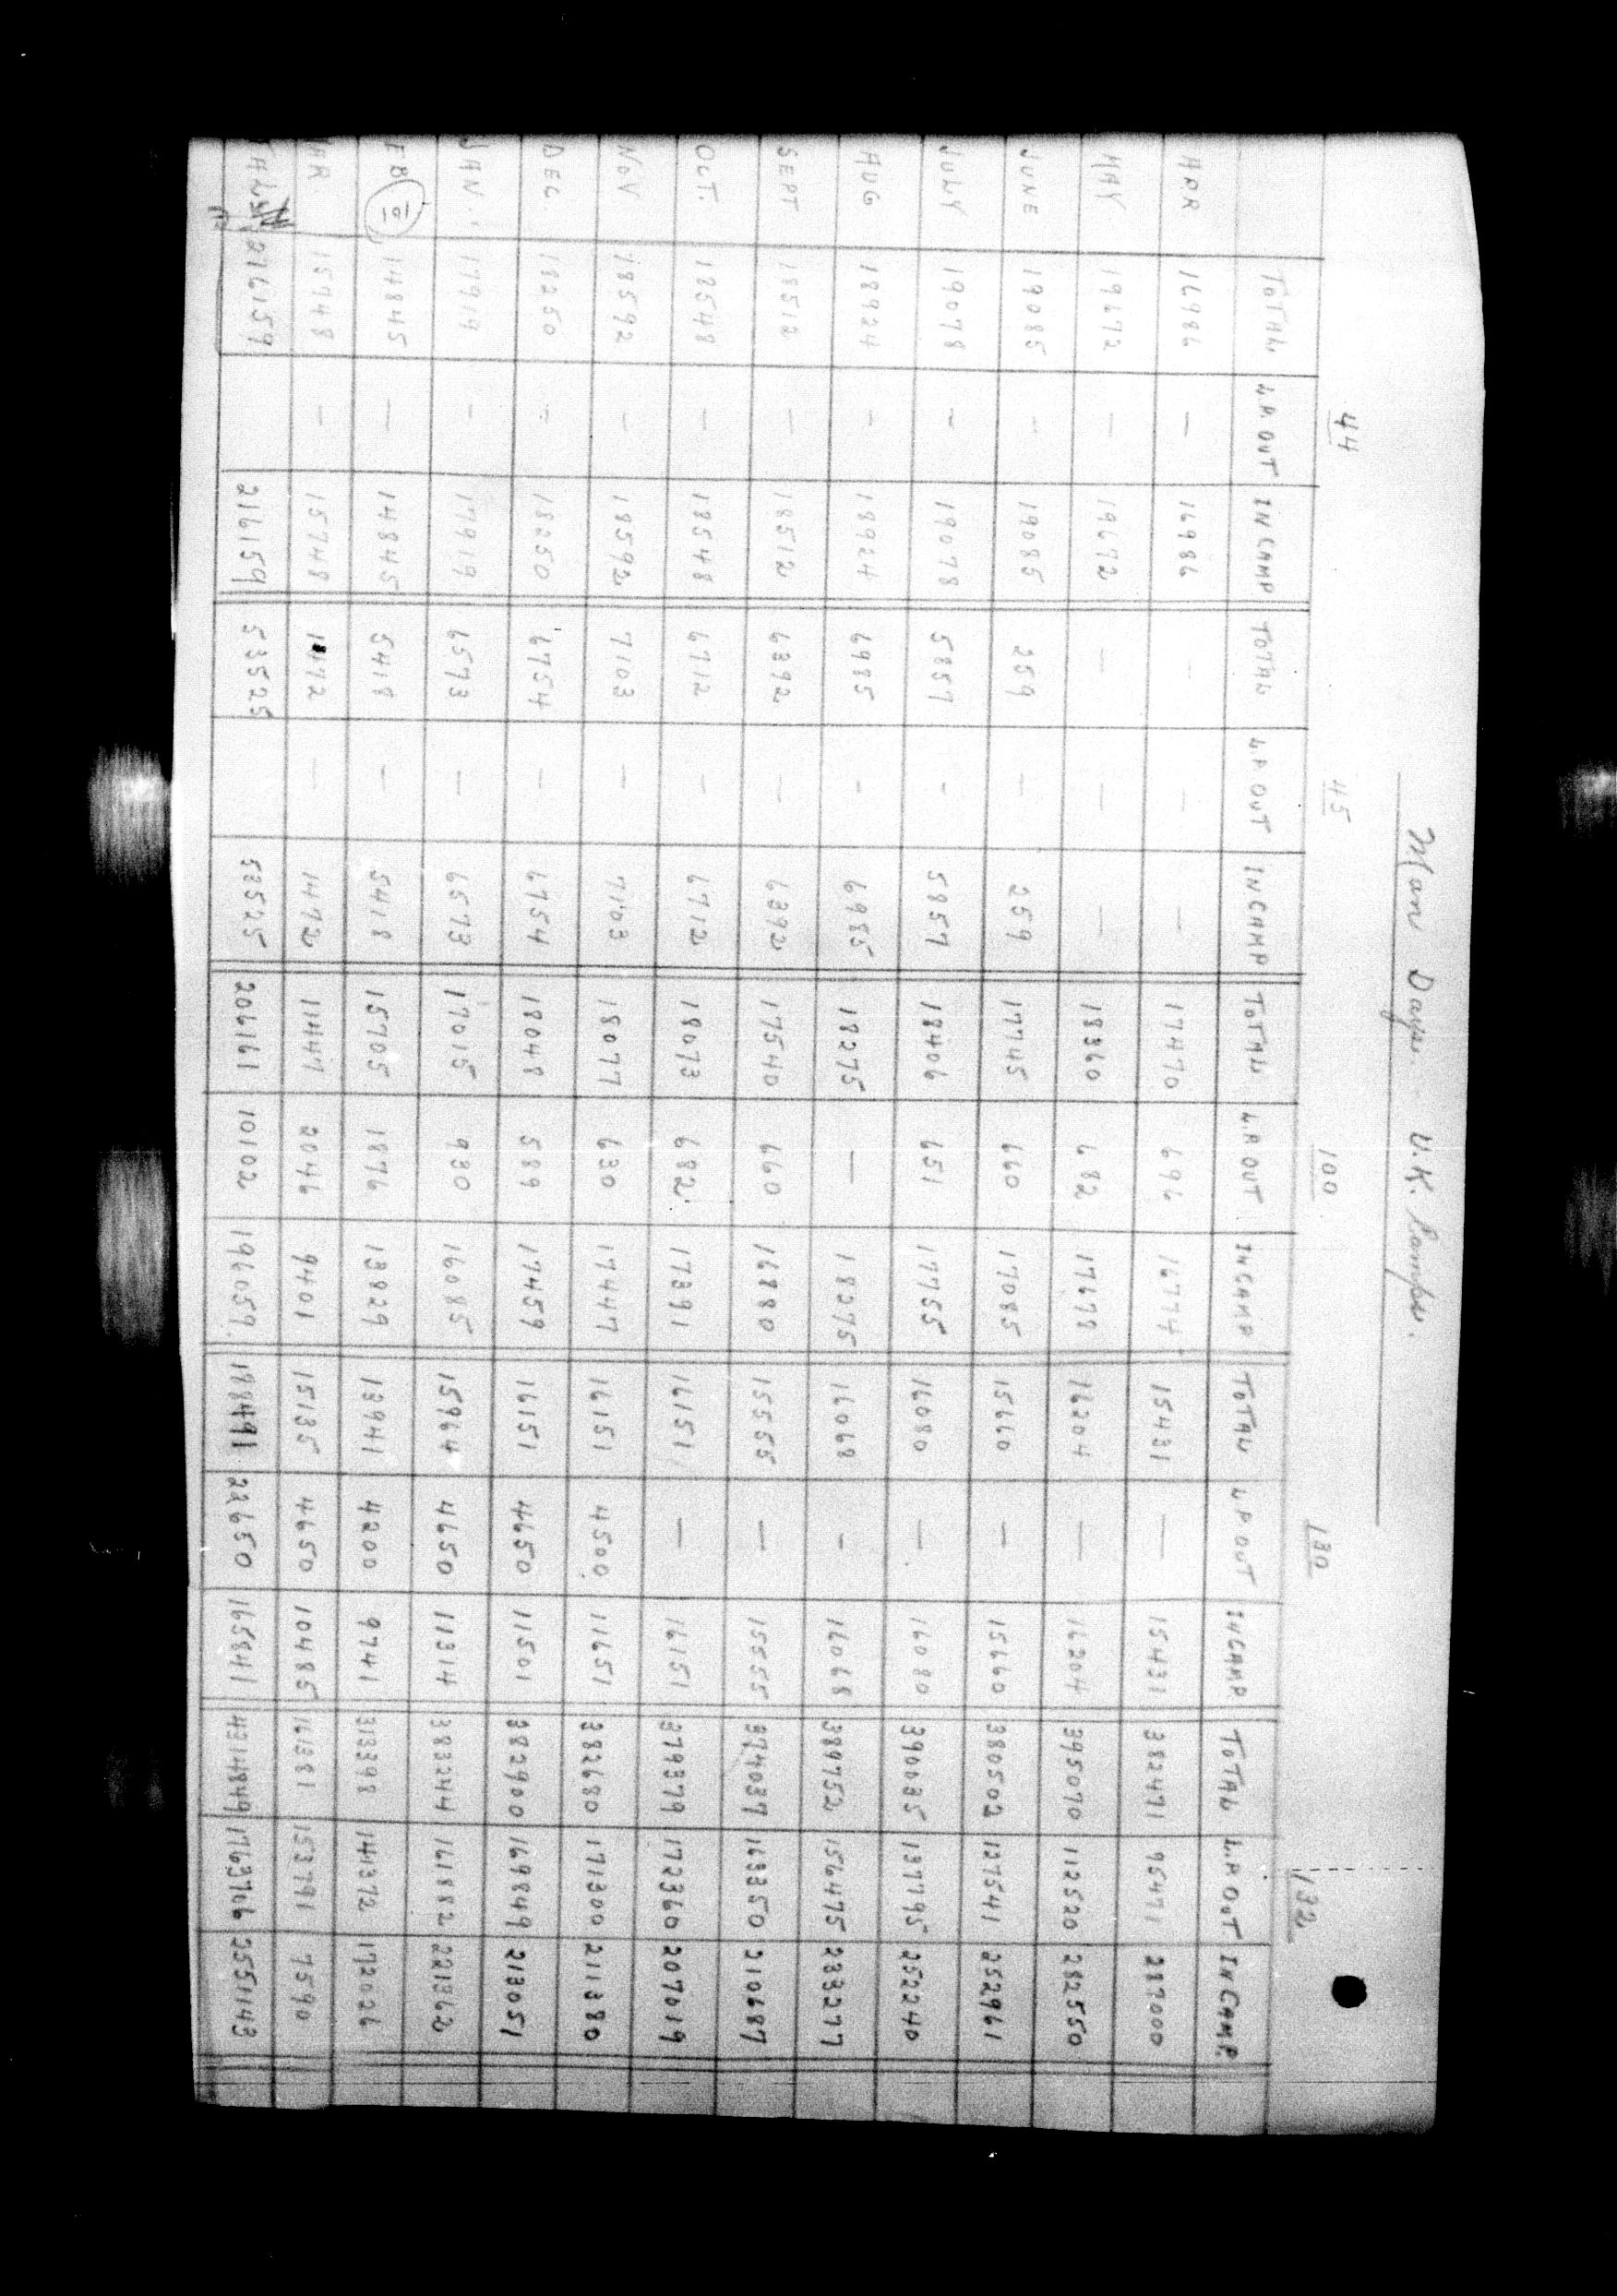 Man Days. U.K. Camps.
44 45 100 130 132
TOTAL L.P. OUT IN CAMP TOTAL L.P. OUT IN CAMP TOTAL L.P. OUT IN CAMP TOTAL L.P. OUT IN CAMP TOTAL L.P. OUT IN CAMP
APR 16986 — 16986 — — — 17470 696 16774 15431 — 15431 382471 95471 287000
MAY 19672 — 19672 — — — 18360 682 17678 16204 — 16204 395070 112520 282550
JUNE 19085 — 19085 259 — 259 17745 660 17085 15660 — 15660 380502 127541 252961
JULY 19078 — 19078 5857 — 5857 18406 651 17755 16080 — 16080 390035 137795 252240
AUG 18924 — 18924 6985 — 6985 18275 — 18275 16068 — 16068 389752 156475 233277
SEPT 18512 — 18512 6392 — 6392 17540 660 16880 15555 — 15555 374037 163350 210687
OCT. 18548 — 18548 6712 — 6712 18073 682 17391 16151 — 16151 379379 172360 207019
NOV 18592 — 18592 7103 — 7103 18077 630 17447 16151 4500 11651 382680 171300 211380
DEC 18250 — 18250 6754 — 6754 18048 589 17459 16151 4650 11501 382900 169849 213051
JAN 17919 — 17919 6573 — 6573 17015 930 16085 15964 4650 11314 383244 161882 221362
EB 14845 — 14845 5418 — 5418 15705 1876 13829 13941 4200 9741 313398 141372 172026
AR 15748 — 15748 1472 — 1472 11447 2046 9401 15135 4650 10485 161381 153791 7590
216159 216159 53525 53525 206161 10102 196059 188491 22650 165841 4314849 1763706 2551143